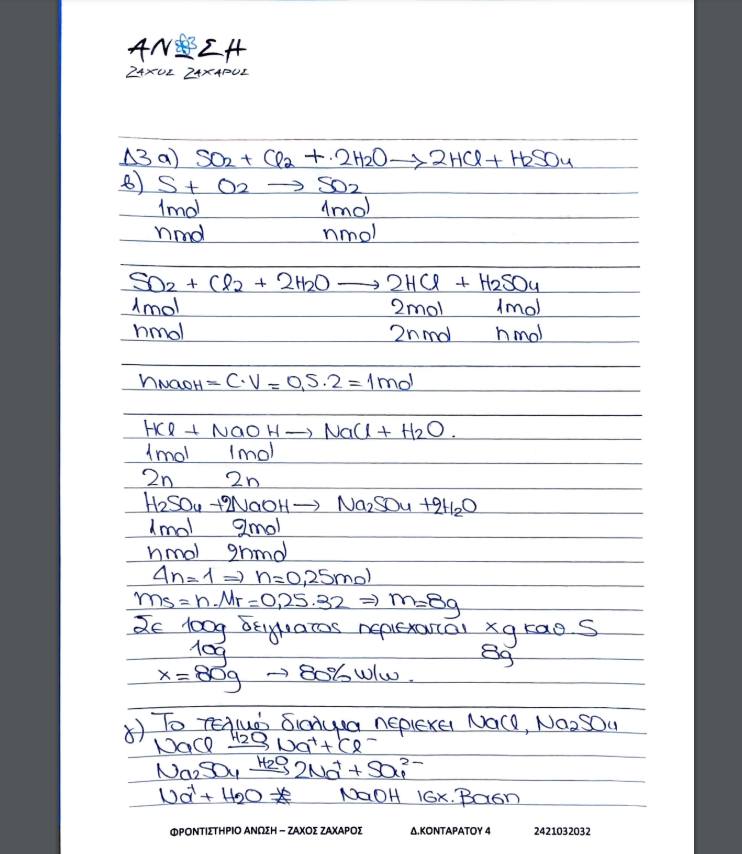 ΑΝΩΣΗ
ΖΑΧΟΣ ΖΑΧΑΡΟΣ
Δ3 α) SO2 + Cl2 + 2H2O → 2HCl + H2SO4
β) S + O2 → SO2
1mol 1mol
nmol nmol
SO2 + Cl2 + 2H2O → 2HCl + H2SO4
1mol 2mol 1mol
nmol 2nmol nmol
nNaOH = C·V = 0,5·2 = 1mol
HCl + NaOH → NaCl + H2O.
1mol 1mol
2n 2n
H2SO4 + 2NaOH → Na2SO4 + 2H2O
1mol 2mol
nmol 2nmol
4n=1 ⇒ n=0,25mol
ms = n.Mr = 0,25.32 ⇒ m=8g
Σε 100g δειγματος περιεχονται xg καθ. S
10g 8g
x = 80g → 80% w/w.
γ) Το τελικό διαλυμα περιεχει NaCl, Na2SO4
NaCl H2O→ Na+ + Cl-
Na2SO4 H2O→ 2Na+ + SO4 2-
Na+ + H2O NaOH ισχ. βαση
ΦΡΟΝΤΙΣΤΗΡΙΟ ΑΝΩΣΗ – ΖΑΧΟΣ ΖΑΧΑΡΟΣ Δ.ΚΟΝΤΑΡΑΤΟΥ 4 2421032032